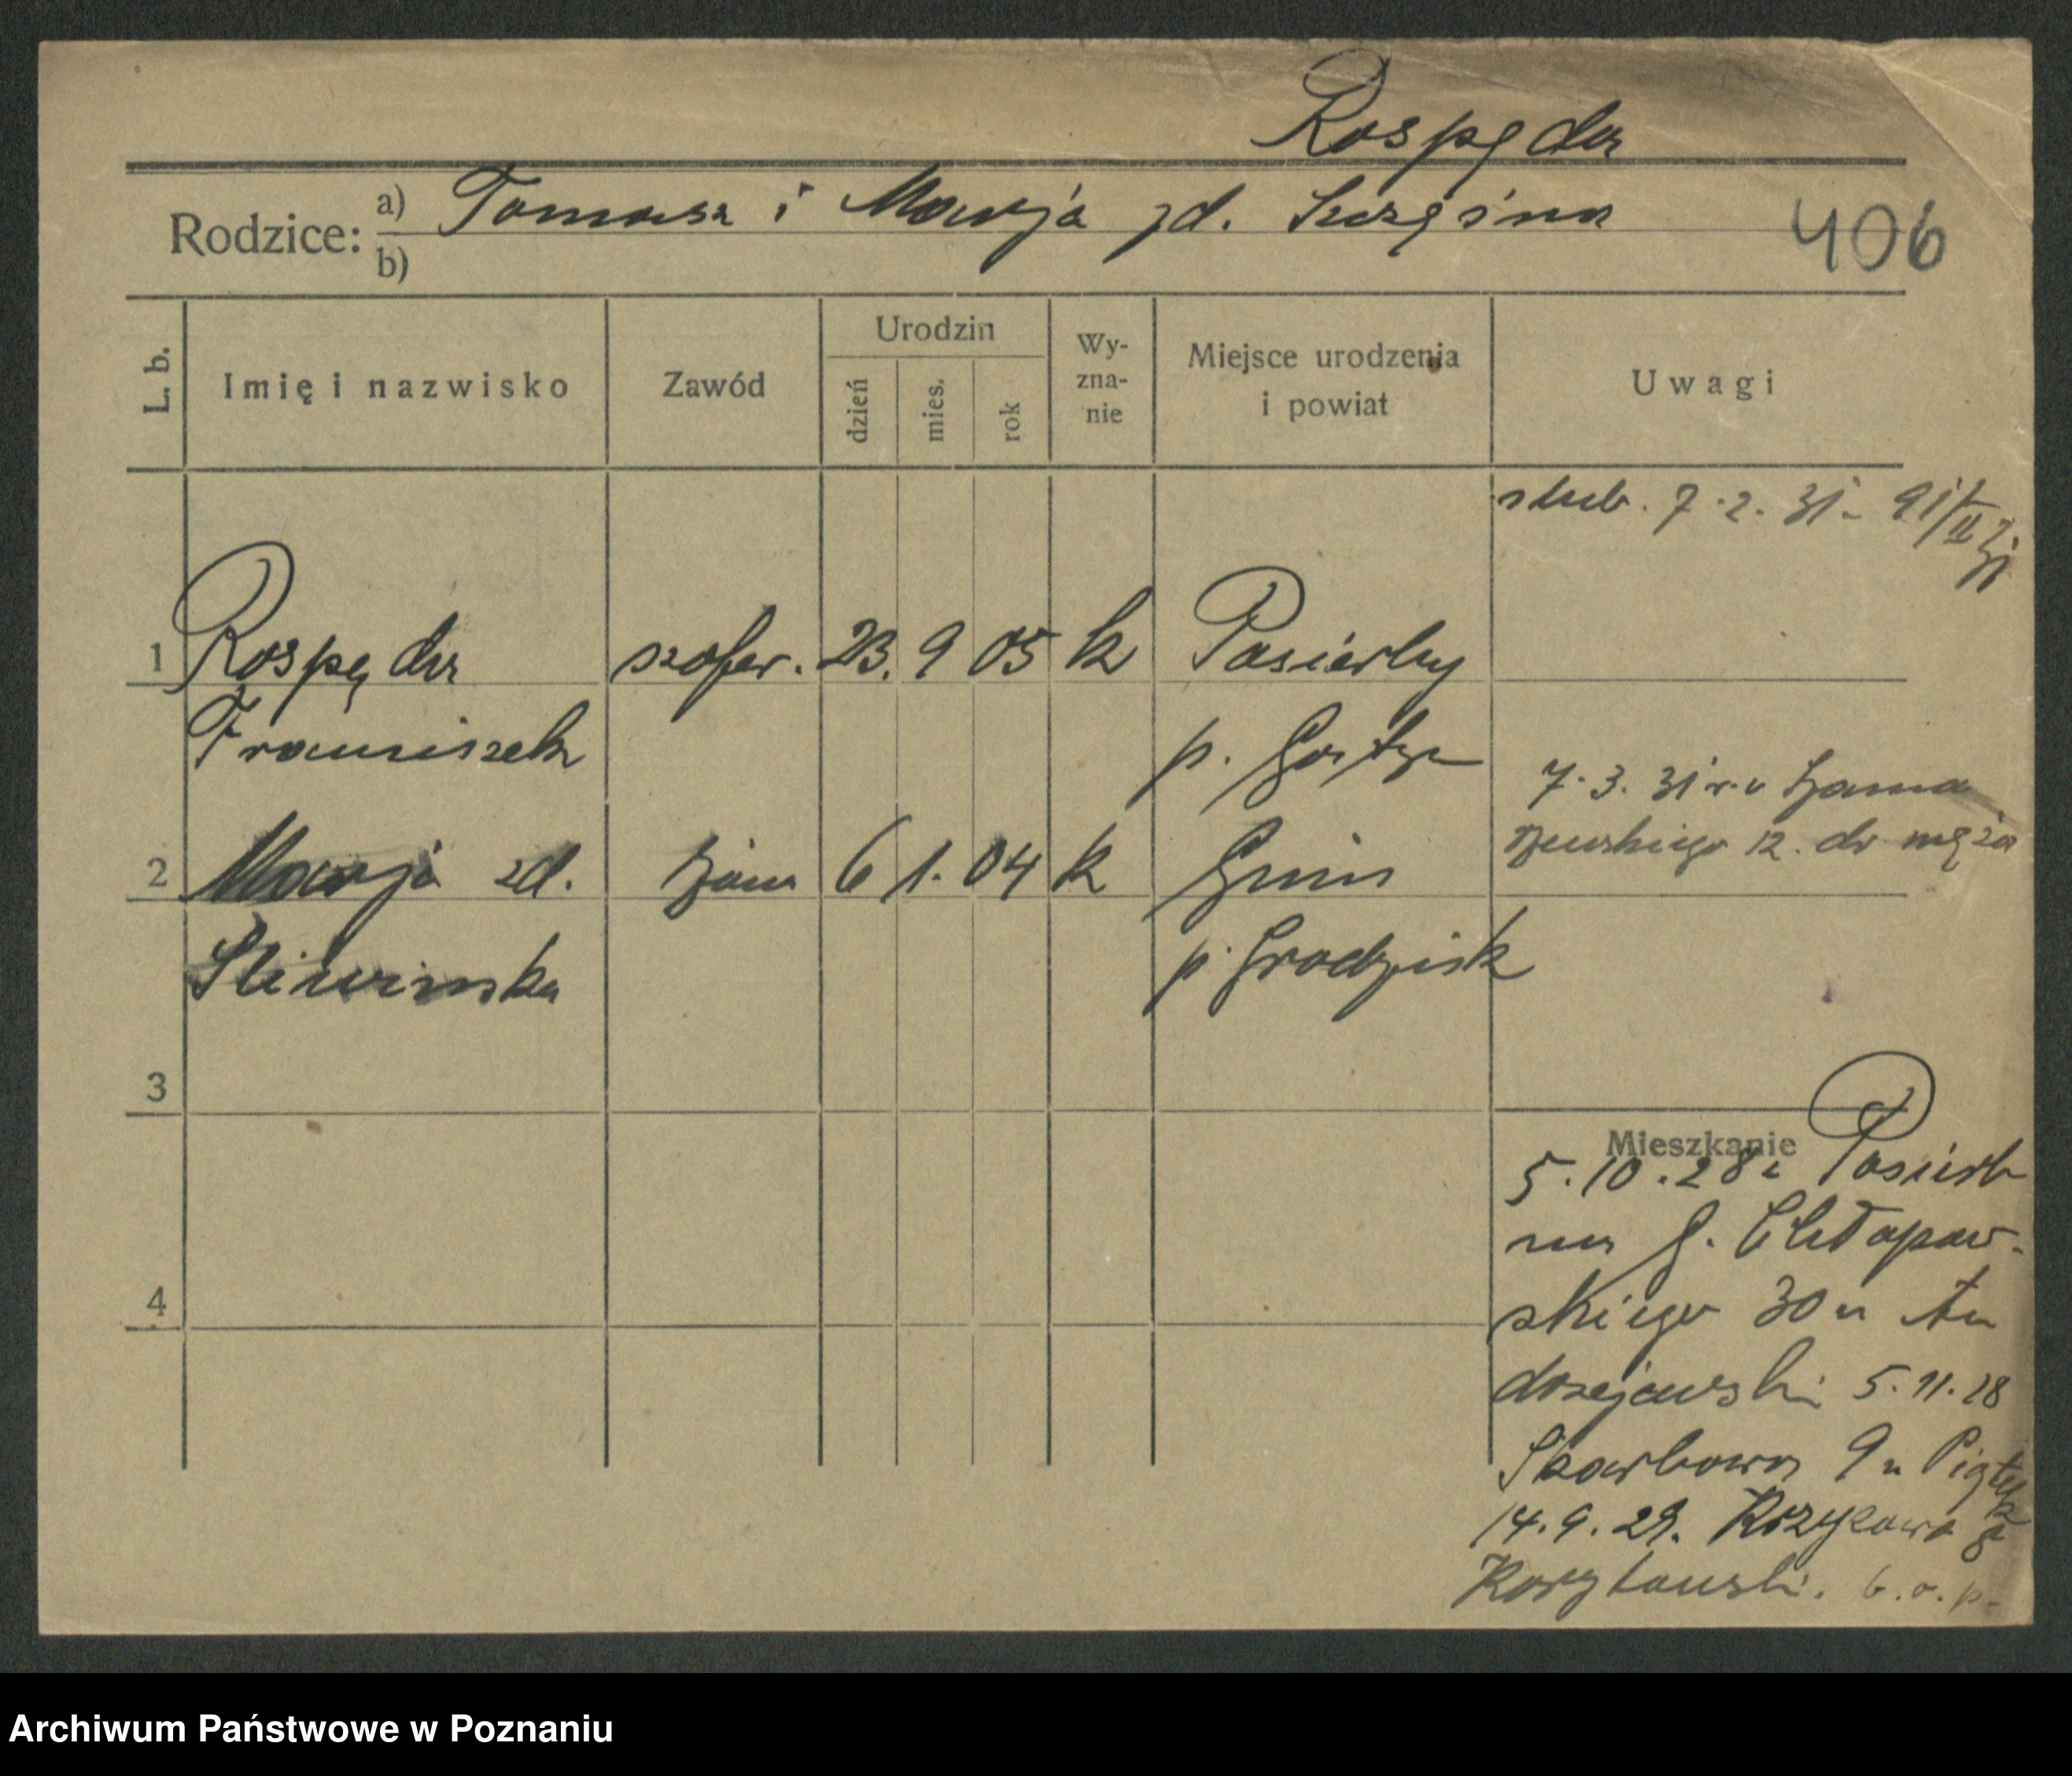 Rospęda
Rodzice: a) Tomasz i Marja zd. Szczęsna
b)
406
L. b. Imię i nazwisko Zawód Urodzin dzień mies. rok Wy-zna-nie Miejsce urodzenia i powiat Uwagi
ślub. 7.2.31
1 Rospęda szofer. 23. 9 05 k Pasierby
Franciszek p. Gostyń
7.3.31 r. u
2 Marja zd. żona 6 1. 04 k Gnin
12. do męża
Śliwińska p. Grodzisk
3
Mieszkanie
5.10.28 z Pasierb
na G. Chłapow-
4
skiego 30 u An
drzejewski 5.11.28
Skarbowa 9 u Piątek
14.9.29. Ryżkowa 8
Korytowski. b.o.p.
Archiwum Państwowe w Poznaniu